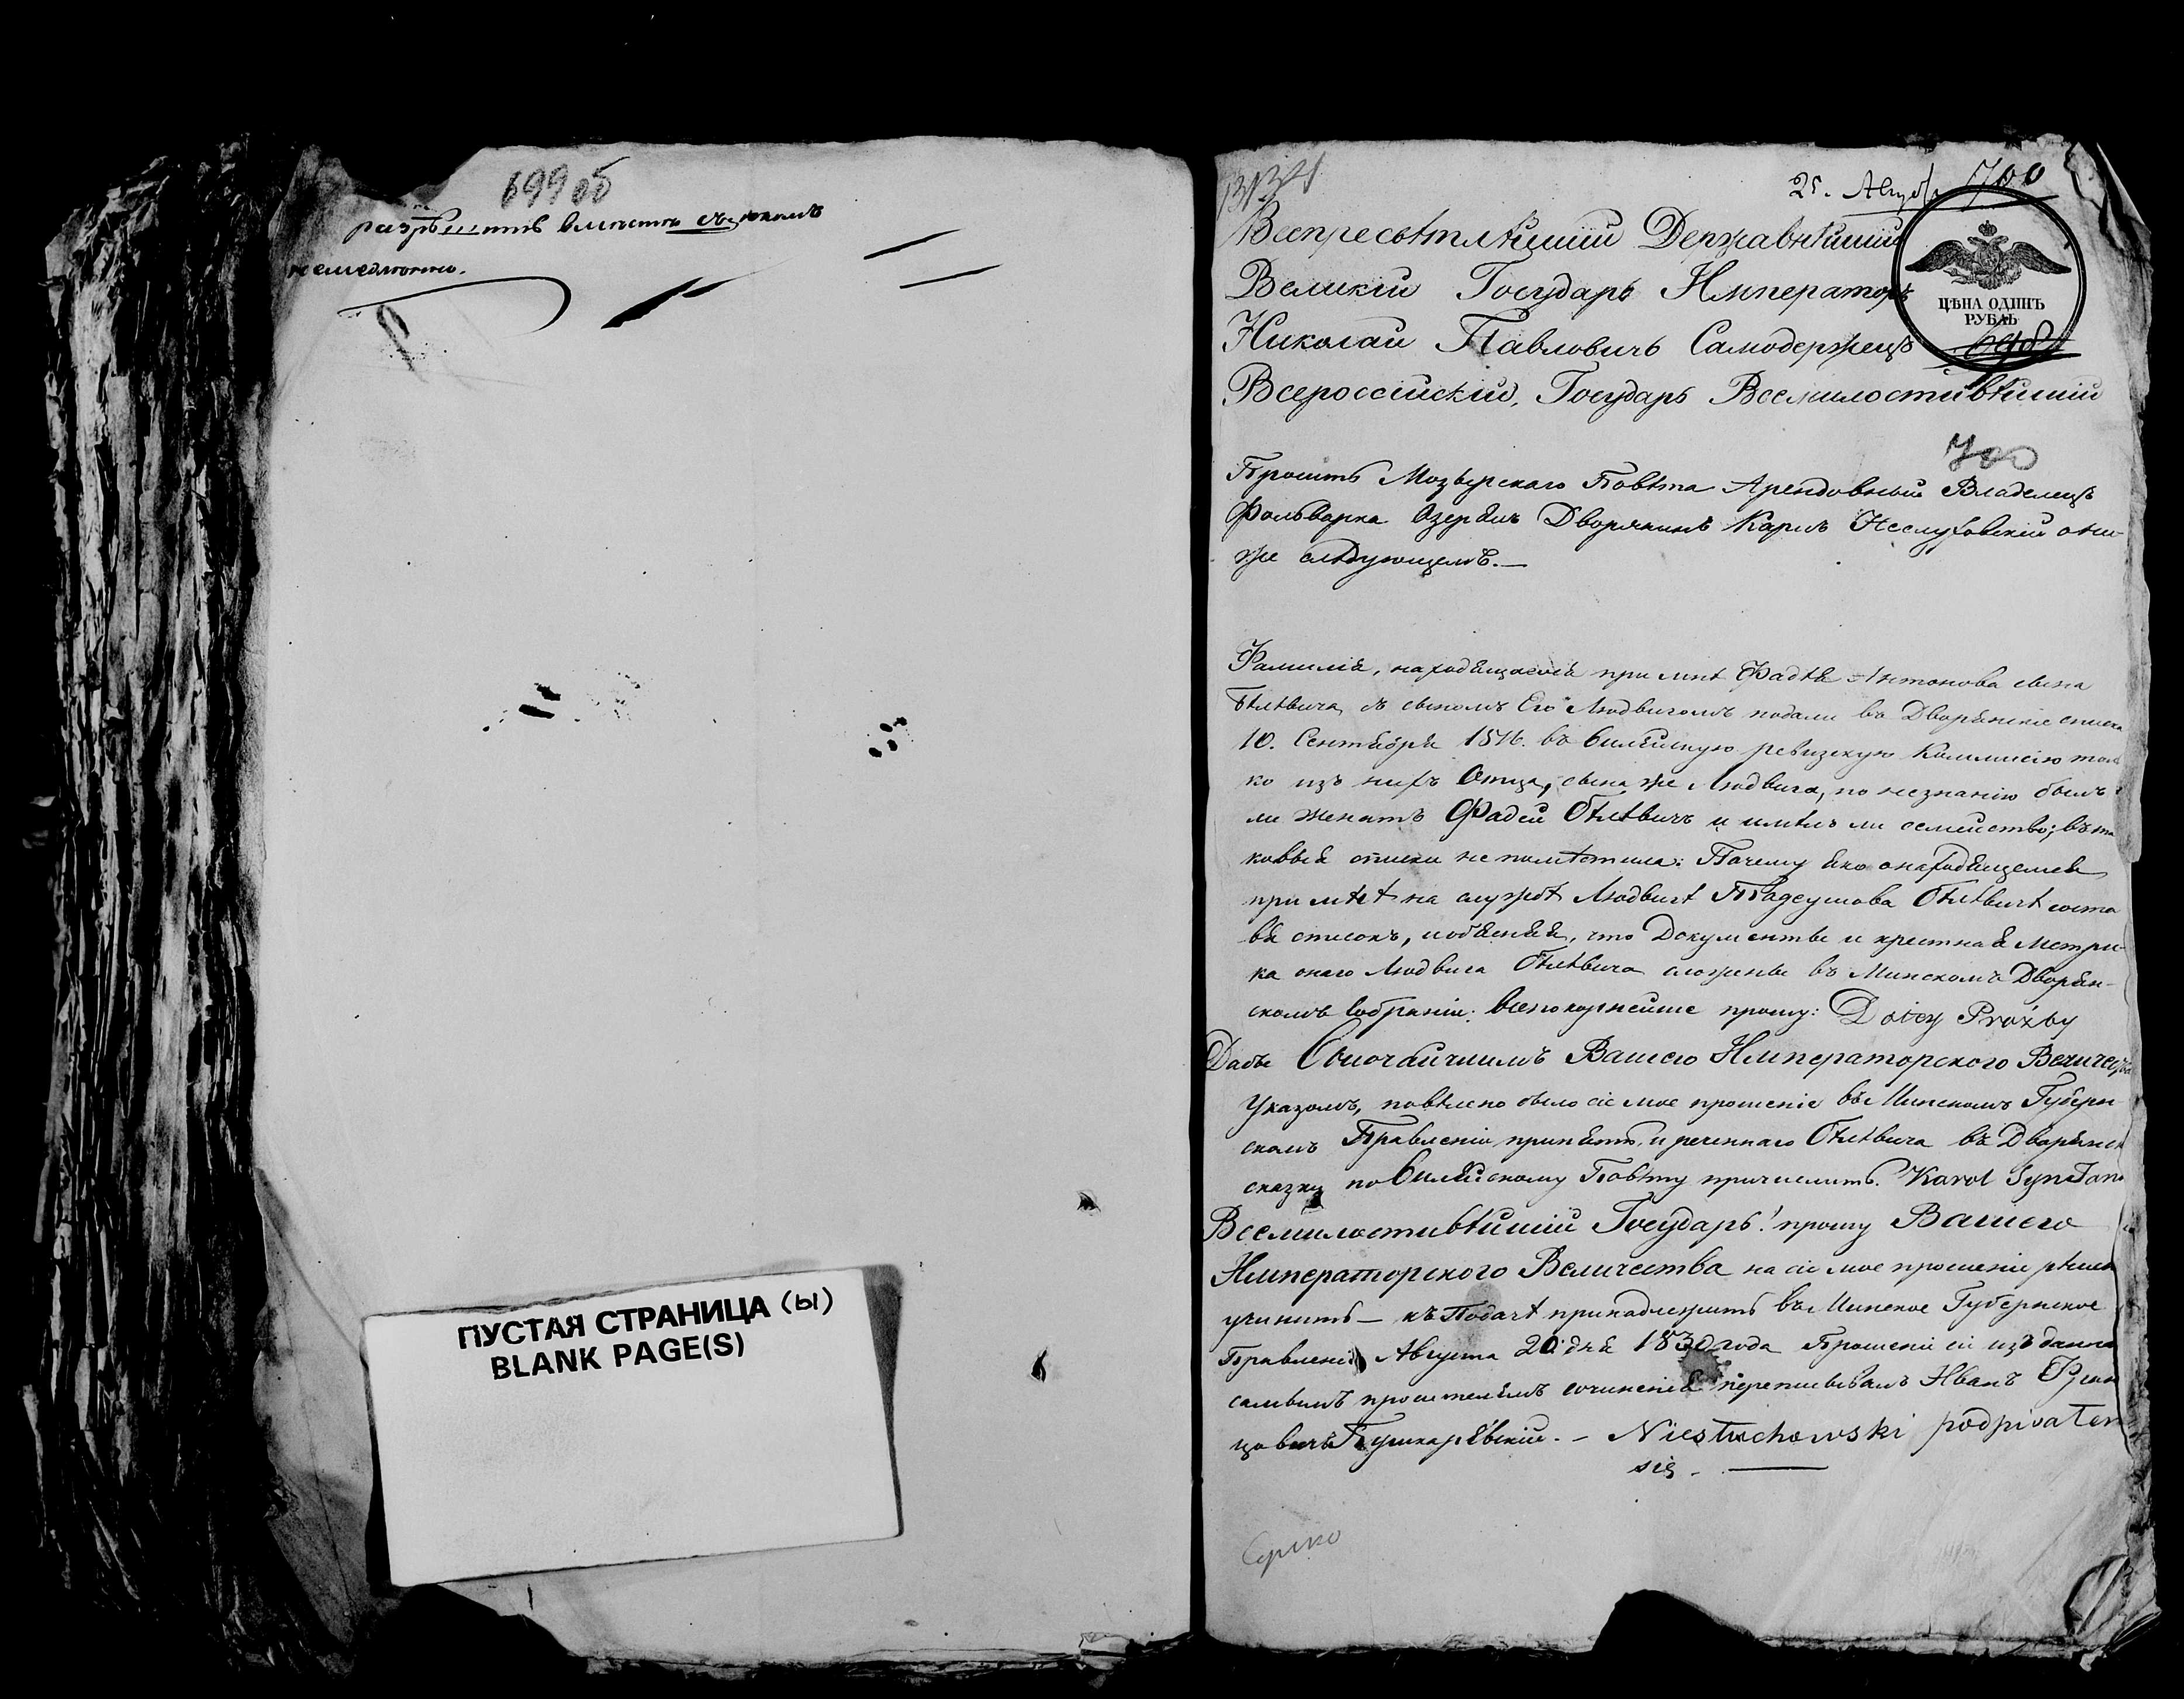 699 об
разрѣшить вместе съ
немедленно.
ПУСТАЯ СТРАНИЦА (ы)
BLANK PAGE(S)
25. Авгус 700
Всепресвѣтлѣйшій Державнѣйшій
Великій Государь Императоръ
ЦѢНА ОДИНЪ
РУБЛЬ
Николай Павловичъ Самодержецъ
698
Всероссійскій, Государь Всемилостивѣйшій
700
Проситъ Мозырскаго Повѣта Арендовный Владелецъ
Фольварка Озеранъ Дворянинъ Карлъ Неслуховскій о ни-
же слѣдующемъ. —
Фамилія, находящаяся при мнѣ Фадѣя Антонова сына
Бѣлѣвича, съ сыномъ Его Людвигомъ подали въ Дворянскіе списки
10. Сентября 1816. въ Вилейскую ревизскую Коммисію толь
ко изъ нихъ Отца, сына же Людвига, по незнанію былъ
ли женатъ Фадей Бѣлѣвичъ и имѣлъ ли семейство; въ та
ковыя списки не помѣстила: Почему яко о находящемся
при мнѣ на службѣ Людвигѣ Тадеушова Бѣлѣвичѣ соста
вя списокъ, и объясняя, что Документы и крестная Метри-
ка онаго Людвига Бѣлѣвича сложены въ Минскомъ Дворян-
скомъ Собраніи: всепокорнейше прошу: Do tey Proźby
Дабы Высочайшимъ Вашего Императорского Величества
Указомъ, повѣлено было сіе мое прошеніе въ Минскомъ Губерн
скомъ Правленіи принять, и реченнаго Бѣлѣвича въ Дворянск
сказку по Вилейскому Повѣту причислить. Karol Syn Jana
Всемилостивѣйшій Государь! прошу Вашего
Императорского Величества на сіе мое прошеніе рѣшен
учинить — къ Подачѣ принадлежитъ въ Минское Губернское
Правленіе Августа 20 дня 1830 года Прошеніе сіе изъ даннаго
самымъ просителемъ сочиненія переписывалъ Иванъ Фран
цовичъ Пушкарѣвскій. — Niesłuchowski podpisałem
się. —